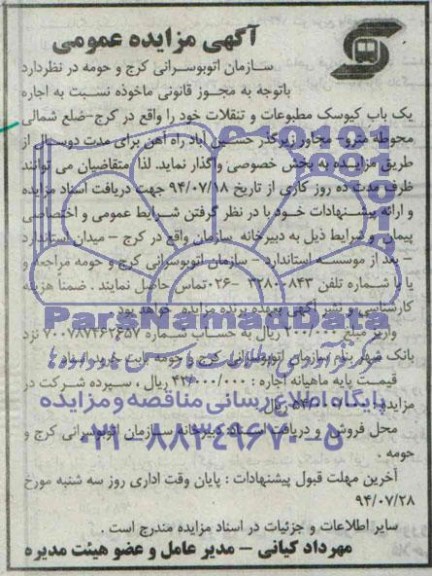 آگهی مزایده عمومی
سازمان اتوبوسرانی کرج و حومه در نظردارد
باتوجه به مجوز قانونی ماخوذه نسبت به اجاره
یک باب کیوسک مطبوعات و تنقلات خود را واقع در کرج-ضلع شمالی
محوطه مترو- مجاور زیرگذر حسین آباد راه آهن برای مدت دوسال از
طریق مزایده به بخش خصوصی واگذار نماید. لذا متقاضیان می توانند
ظرف مدت ده روز کاری از تاریخ ۹۴/۰۷/۱۸ جهت دریافت اسناد مزایده
و ارائه پیشنهادات خود با در نظر گرفتن شرایط عمومی و اختصاصی
پیمان و شرایط ذیل به دبیرخانه سازمان واقع در کرج – میدان استاندارد
– بعد از موسسه استاندارد – سازمان اتوبوسرانی کرج و حومه مراجعه و
یا با شماره تلفن ۳۲۸۰۰۸۴۳ -۰۲۶تماس حاصل نمایند . ضمناً هزینه
کارشناسی و نشر آگهی بعهده برنده مزایده خواهد بود
واریز مبلغ ریال به حساب شماره ۷۰۰۷۸۷۲۶۲۶۵۷ نزد
بانک شهر بنام سازمان اتوبوسرانی کرج و حومه بابت خرید اسناد
قیمت پایه ماهیانه اجاره : ۴۲/۰۰۰/۰۰۰ ریال ، سپرده شرکت در
مزایده ریال
محل فروش و دریافت اسناد: دبیرخانه سازمان اتوبوسرانی کرج و
حومه .
آخرین مهلت قبول پیشنهادات : پایان وقت اداری روز سه شنبه مورخ
۹۴/۰۷/۲۸
سایر اطلاعات و جزئیات در اسناد مزایده مندرج است .
مهرداد کیانی – مدیر عامل و عضو هیئت مدیره
ParsNamadData
پایگاه اطلاع رسانی مناقصه و مزایده
۰۲۱-۸۸۳۴۹۶۷۰-۵